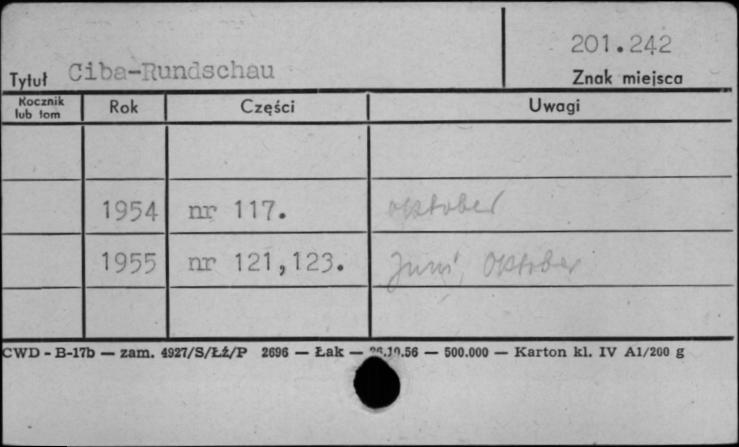 201.242
Tytuł Ciba-Rundschau Znak miejsca
Rocznik lub tom Rok Części Uwagi
1954 nr 117. oktober
1955 nr 121,123. Juni, Oktober
CWD - B-17b — zam. 4927/S/Łż/P 2696 — Łak — 26.10.56 — 500.000 — Karton kl. IV A1/200 g